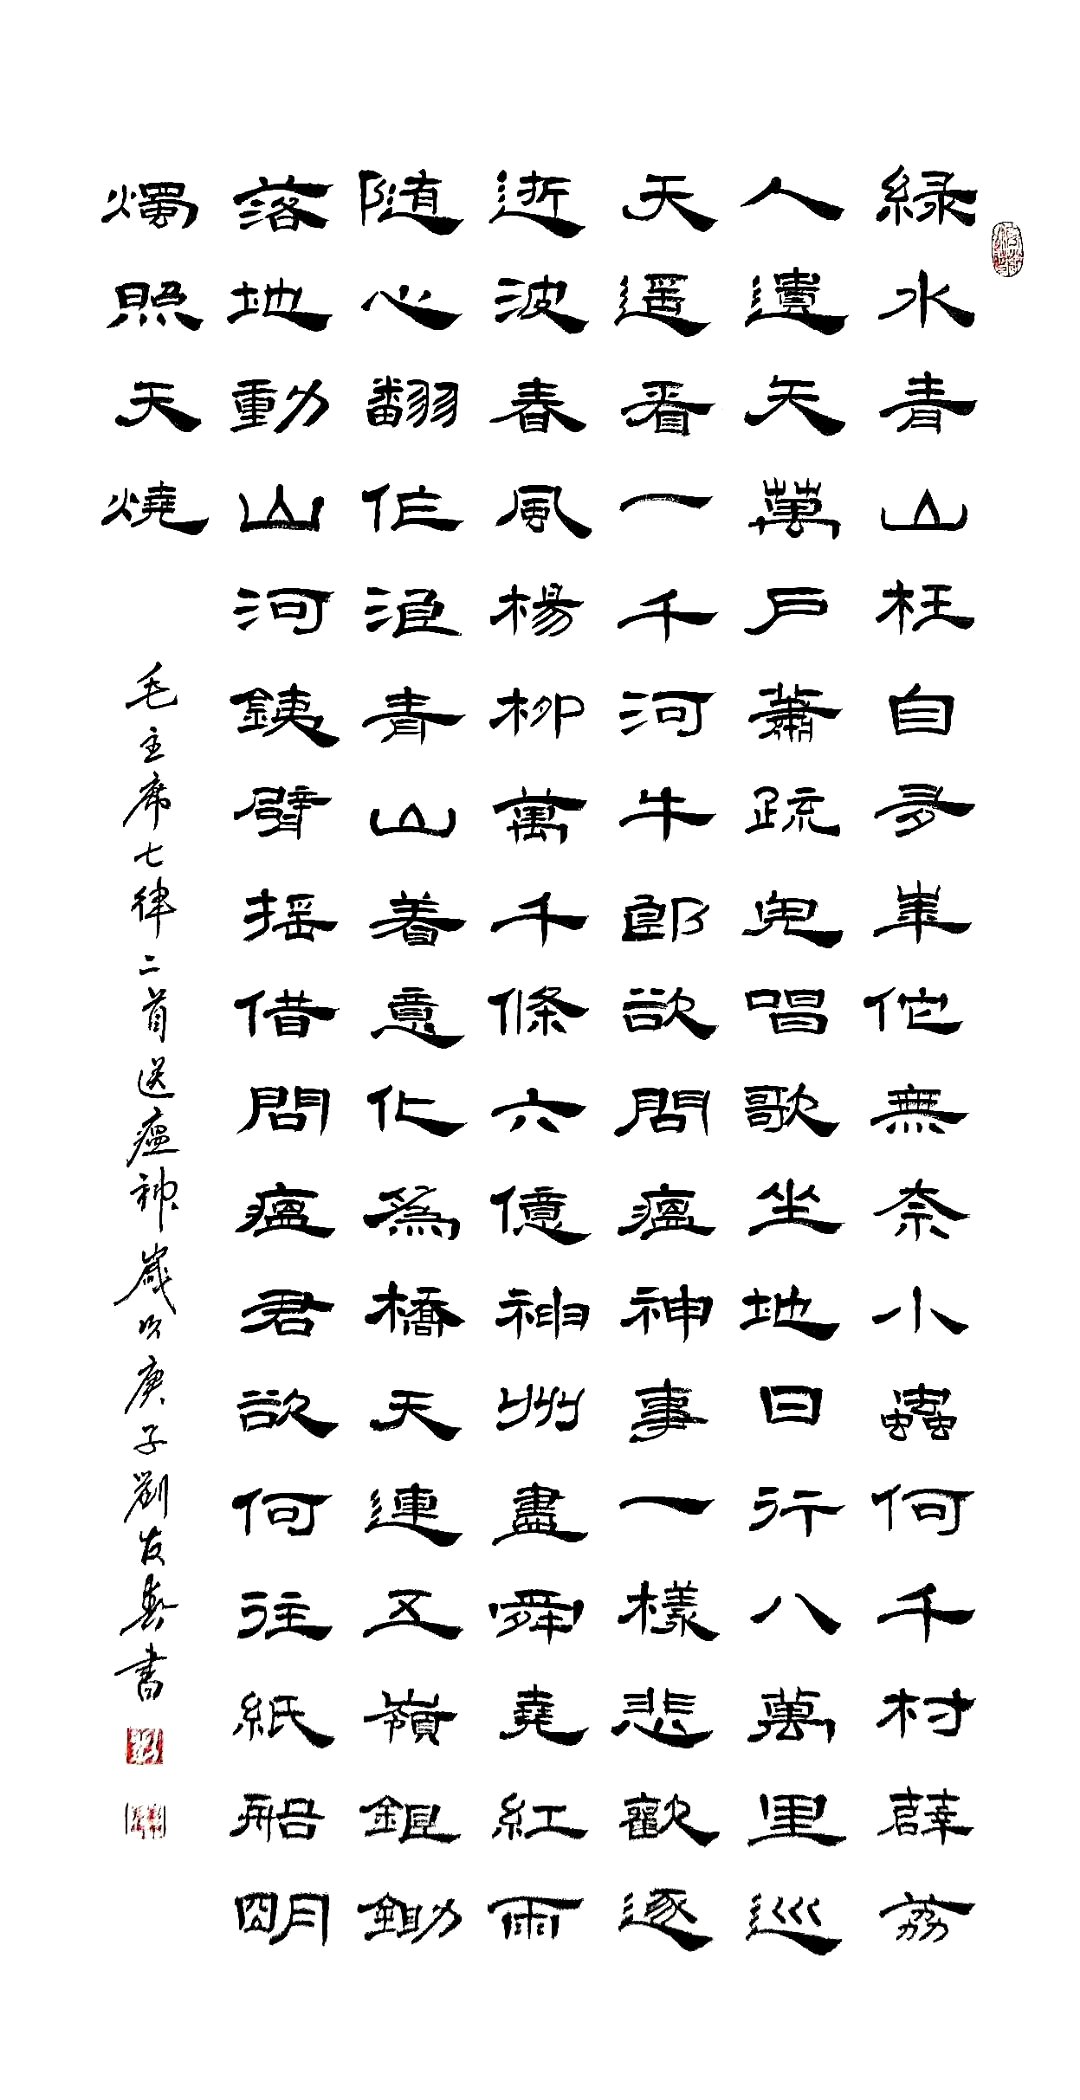 緑水青山枉自多華佗無奈小蟲何千村薜荔
人遺矢萬戶蕭疏鬼唱歌坐地日行八萬里巡
天遥看一千河牛郎欲問瘟神事一樣悲歡逐
逝波春風楊柳萬千條六億神州盡舜堯紅雨
随心翻作浪青山着意化爲橋天連五嶺銀鋤
落地動山河銕臂揺借問瘟君欲何往紙船明
燭照天燒
毛主席七律二首送瘟神歲次庚子劉友書